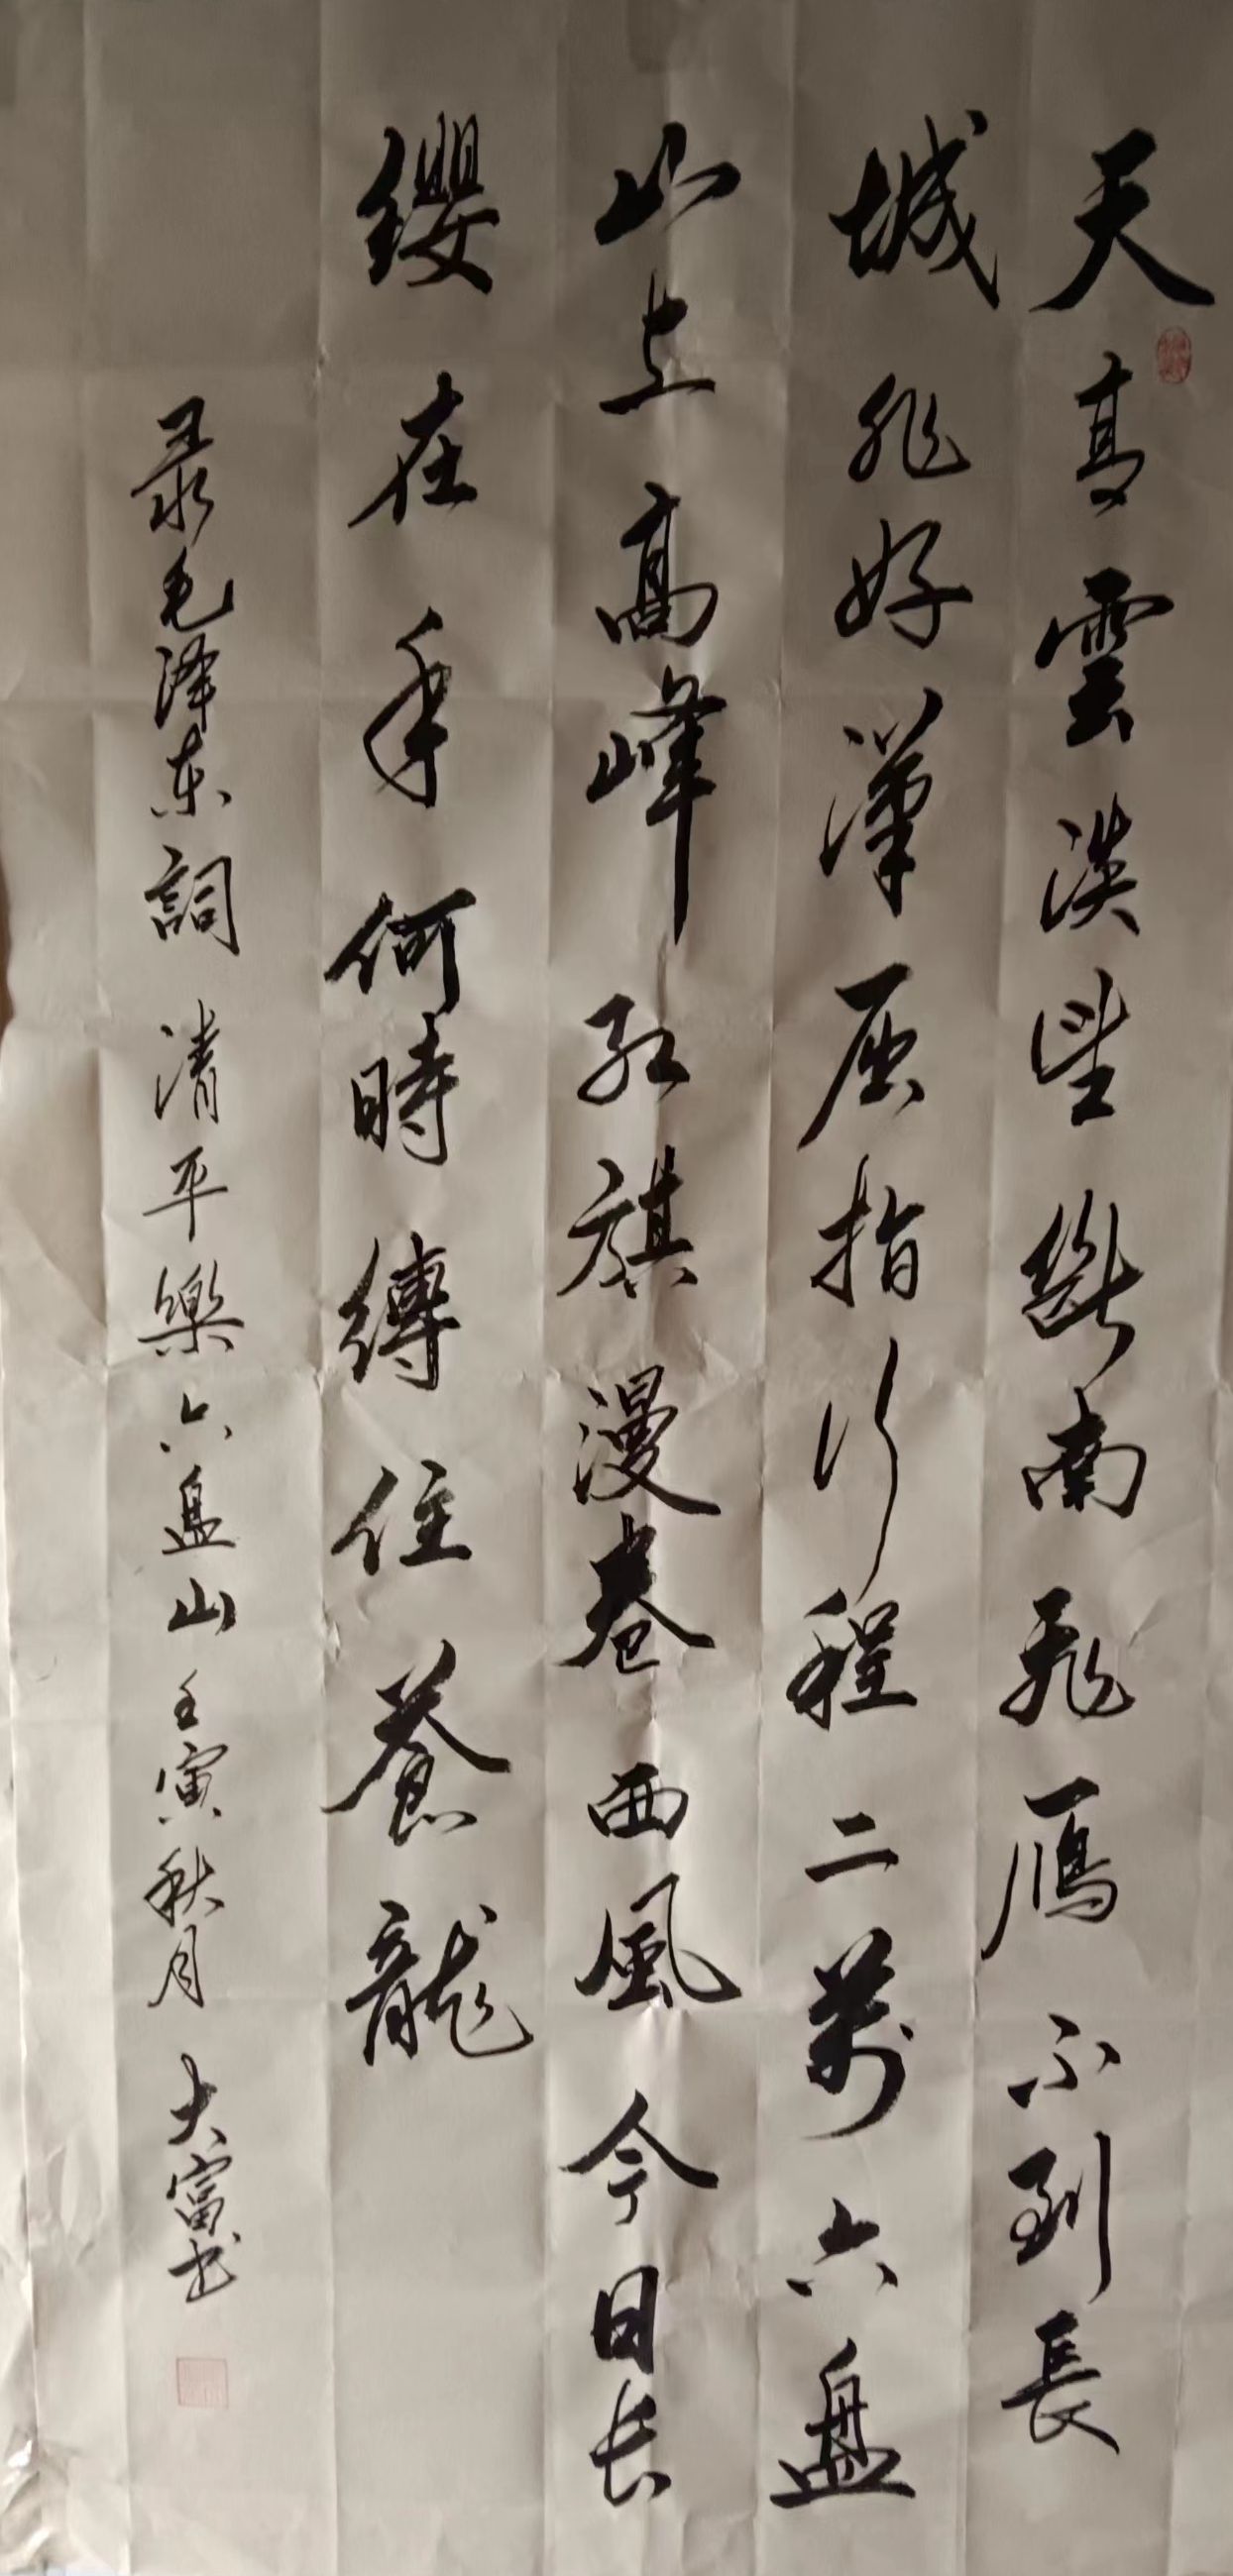 天高雲淡望斷南飛雁不到長
城非好漢屈指行程二萬六盤
山上高峰紅旗漫卷西風今日长
纓在手何時縛住蒼龍
录毛泽东詞清平樂六盘山壬寅秋月大富书